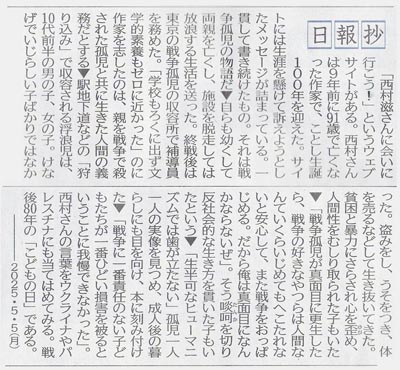 日報抄
「西村滋さんに会いに
行こう!」というウェブ
サイトがある。西村さん
は9年前に91歳で亡くな
った作家で、ことし生誕
100年を迎えた。サイ
トには生涯を懸けて訴えようとし
たメッセージが詰まっている。一
貫して書き続けたもの。それは戦
争孤児の物語だ▼自らも幼くして
両親を亡くし、施設を脱走しては
放浪する生活を送った。終戦後は
東京の戦争孤児の収容所で補導員
を務めた。「学校もろくに出ず文
学的素養もゼロに近かった」のに
作家を志したのは、親を戦争で殺
された孤児と共に生きた人間の義
務だとする▼駅地下道などの「狩
り込み」で収容される浮浪児は、
10代前半の男の子、女の子。けな
げでいじらしい子ばかりではなか
った。盗みをし、うそをつき、体
を売るなどして生き抜いてきた。
貧困と暴力にさらされ心を歪め、
人間性をむしり取られた子もいた
▼「戦争孤児が真面目に更生した
ら、戦争の好きなやつらは人間な
んていくらいじめてもへこたれな
いと安心して、また戦争をおっぱ
じめる。だから俺は真面目になん
かならないぜ」。そう啖呵を切り
反社会的な生き方を貫いた子もい
たという▼「生半可なヒューマニ
ズムでは歯が立たない」孤児一人
一人の実像を見つめ、成人後の暮
らしにも目を向け、本に刻み付け
た▼「戦争に一番責任のない子ど
もたちが一番ひどい損害を被ると
いうことに我慢できなかった」。
西村さんの言葉をウクライナやパ
レスチナにも当てはめてみる。戦
後80年の「こどもの日」である。
――2025・5・5(月)